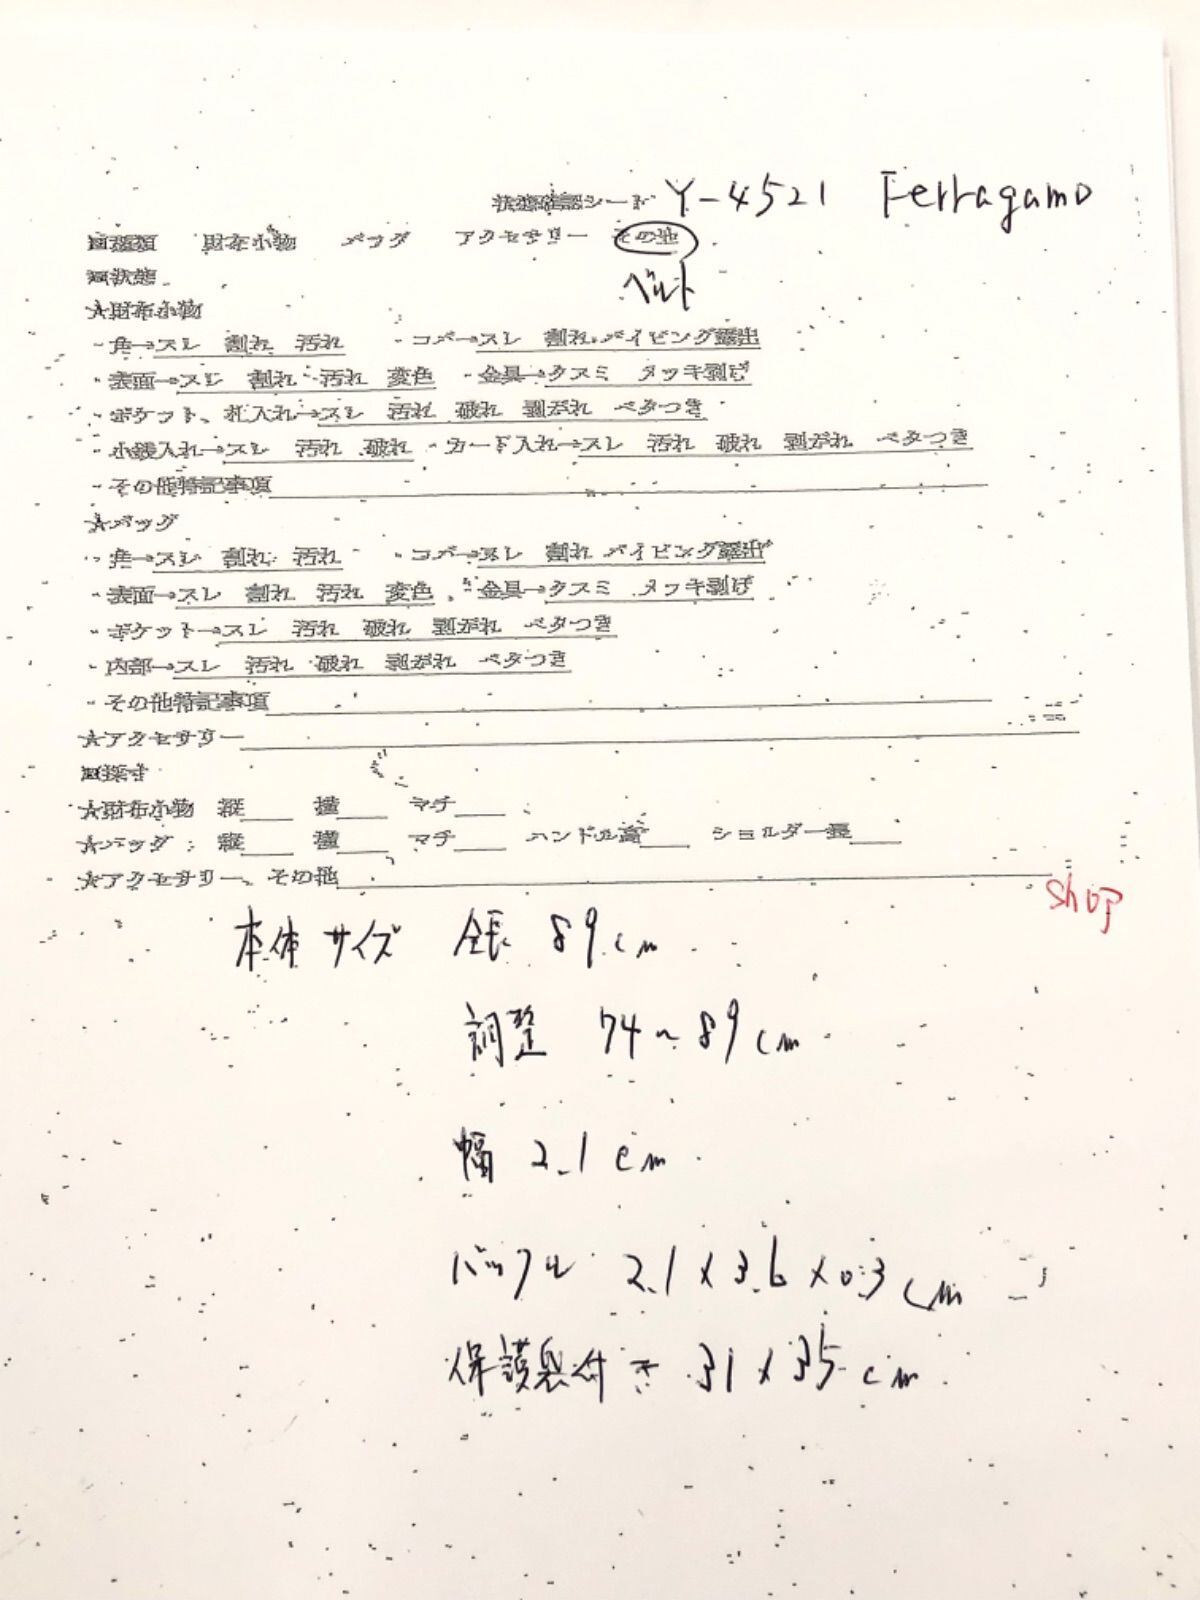 状態確認シード Y-4521 Ferragamo
■種類 財布小物 バッグ アクセサリー その他
ベルト
■状態
★財布小物
・角→スレ 割れ 汚れ ・コバ→スレ 割れ パイピング露出
・表面→スレ 割れ 汚れ 変色 ・金具→クスミ メッキ剥げ
・ポケット、札入れ→スレ 汚れ 破れ 剥がれ ベタつき
・小銭入れ→スレ 汚れ 破れ ・カード入れ→スレ 汚れ 破れ 剥がれ ベタつき
・その他特記事項
★バッグ
・角→スレ 割れ 汚れ ・コバ→スレ 割れ パイピング露出
・表面→スレ 割れ 汚れ 変色 ・金具→クスミ メッキ剥げ
・ポケット→スレ 汚れ 破れ 剥がれ ベタつき
・内部→スレ 汚れ 破れ 剥がれ ベタつき
・その他特記事項
★アクセサリー
■採寸
★財布小物 縦 横 マチ
★バッグ 縦 横 マチ ハンドル高 ショルダー長
★アクセサリー、その他
shop
本体サイズ 全長 89cm
調整 74~89cm
幅 2.1cm
バックル 2.1×3.6×0.3cm
保護袋付き 31×35cm